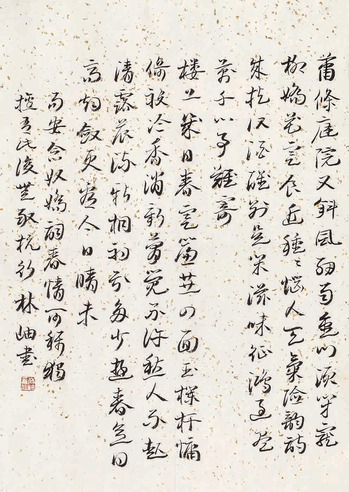 蕭條庭院又斜風細雨重門須閉寵
柳嬌花寒食近種種惱人天氣險韻詩
成扶頭酒醒別是閑滋味征鴻過盡
萬千心事難寄
樓上幾日春寒簾垂四面玉欄杆慵
倚被冷香消新夢覺不許愁人不起
清露晨流新桐初引多少遊春意日
高烟斂更看今日晴未
易安念奴嬌詞春情可稱獨
林岫書